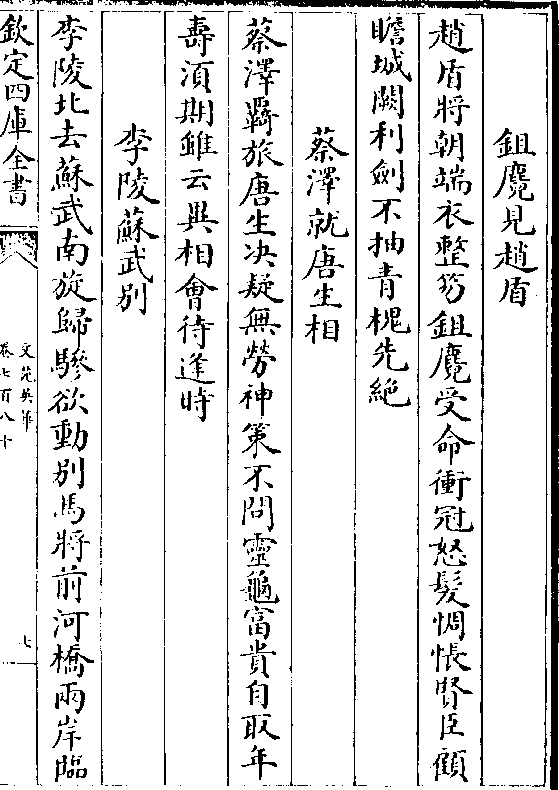 鉏麑見趙盾
趙盾將朝端衣整笏鉏麑受命衝冠怒髮惆悵賢臣顧
瞻城闕利劍不抽青槐先絶
蔡澤就唐生相
蔡澤羇旅唐生决疑無勞神策不問靈龜富貴自取年
壽湏期雖云異相會待逢時
李陵蘇武别
李陵北去蘇武南旋歸驂欲動别馬將前河橋兩岸臨
欽定四庫全書
文苑英華
卷七百八十
七